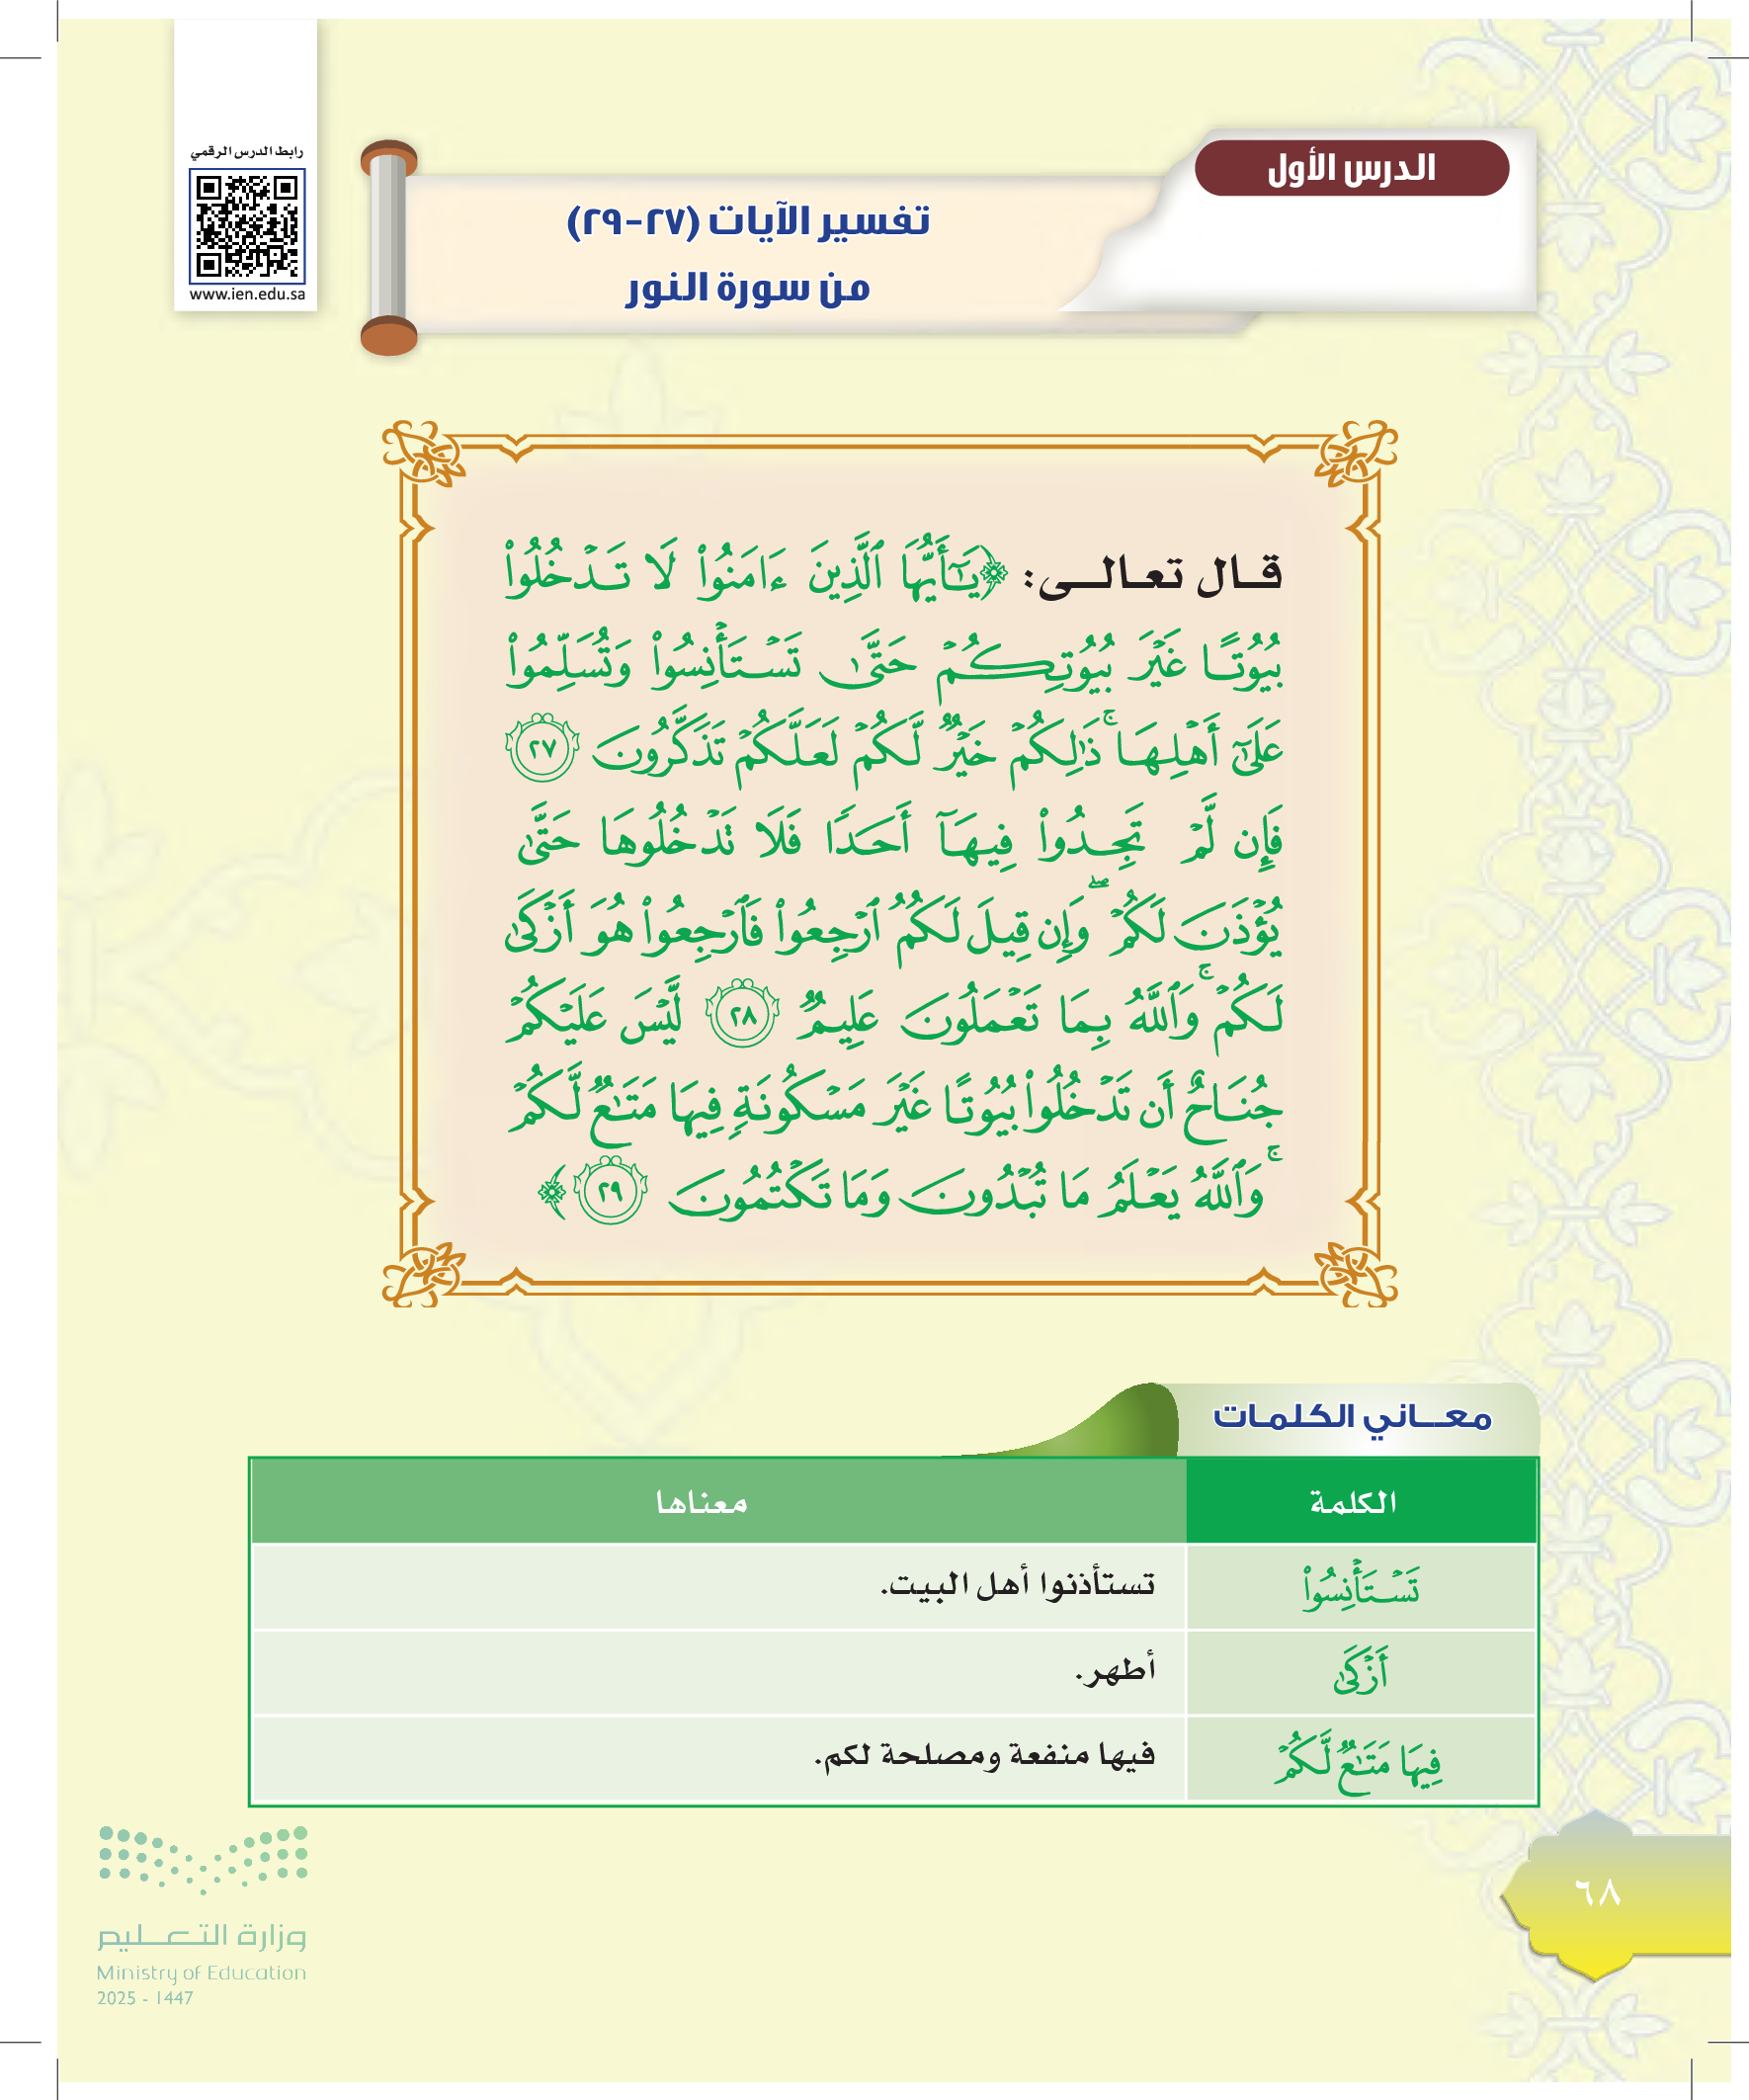 رابط الدرس الرقمي
www.ien.edu.sa
الدرس الأول
تفسير الآيات (٢٧-٢٩)
من سورة النور
قال تعالى: ﴿يَٰٓأَيُّهَا ٱلَّذِينَ ءَامَنُوا۟ لَا تَدْخُلُوا۟
بُيُوتًا غَيْرَ بُيُوتِكُمْ حَتَّىٰ تَسْتَأْنِسُوا۟ وَتُسَلِّمُوا۟
عَلَىٰٓ أَهْلِهَا ۚ ذَٰلِكُمْ خَيْرٌ لَّكُمْ لَعَلَّكُمْ تَذَكَّرُونَ ٢٧
فَإِن لَّمْ تَجِدُوا۟ فِيهَآ أَحَدًا فَلَا تَدْخُلُوهَا حَتَّىٰ
يُؤْذَنَ لَكُمْ ۖ وَإِن قِيلَ لَكُمُ ٱرْجِعُوا۟ فَٱرْجِعُوا۟ هُوَ أَزْكَىٰ
لَكُمْ ۚ وَٱللَّهُ بِمَا تَعْمَلُونَ عَلِيمٌ ٢٨ لَّيْسَ عَلَيْكُمْ
جُنَاحٌ أَن تَدْخُلُوا۟ بُيُوتًا غَيْرَ مَسْكُونَةٍ فِيهَا مَتَٰعٌ لَّكُمْ
ۚ وَٱللَّهُ يَعْلَمُ مَا تُبْدُونَ وَمَا تَكْتُمُونَ ٢٩﴾
معاني الكلمات
الكلمة معناها
تَسْتَأْنِسُوا۟ تستأذنوا أهل البيت.
أَزْكَىٰ أطهر.
فِيهَا مَتَٰعٌ لَّكُمْ فيها منفعة ومصلحة لكم.
٦٨
وزارة التعليم
Ministry of Education
2025 - 1447